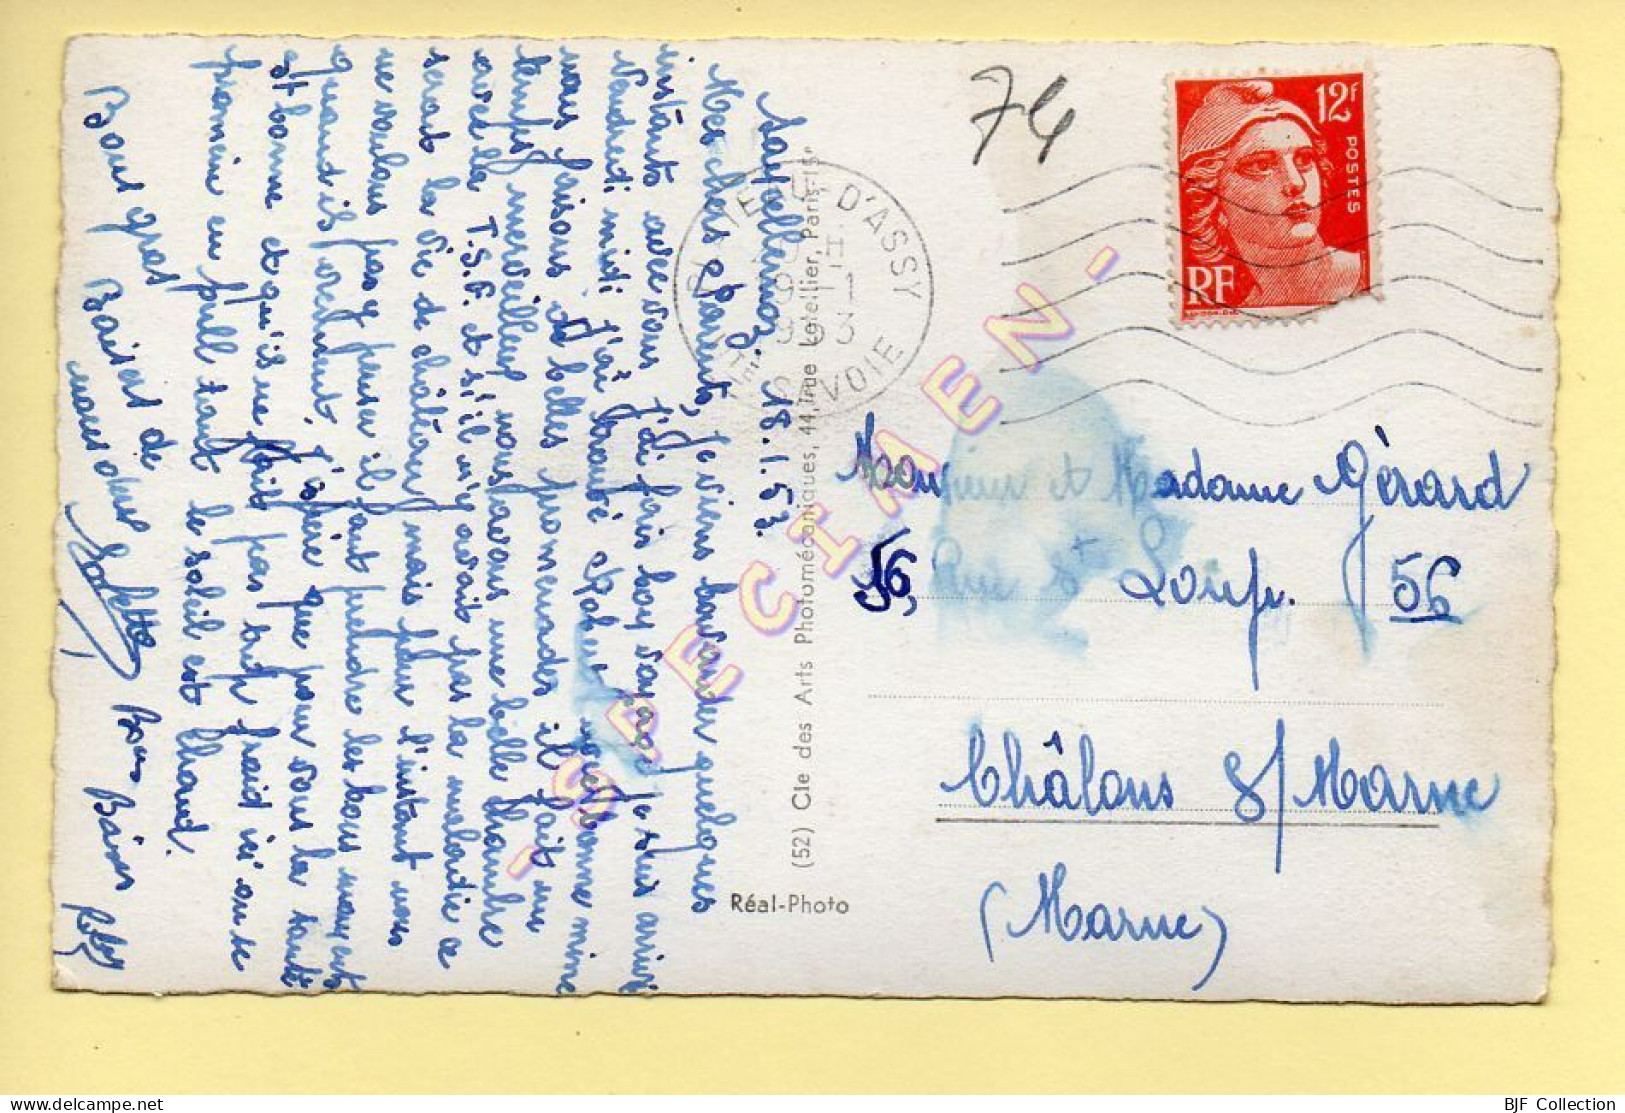 Sancellemoz. 18.1.53.
Mes chers Parents, Je viens bavarder quelques
instants avec vous. J'ai fais bon voyage je suis arrivé
Vendredi midi j'ai trouvé Robert avec bonne mine
nous faisons de belles promenades il fait un
temps merveilleux, nous avons une belle chambre
avec la T.S.F. et s'il n'y avait pas la maladie ce
serait la vie de château mais pour l'instant nous
ne voulons pas y penser il faut prendre les bons moments
quand ils viennent. J'espère que pour vous la santé
est bonne et qu'il ne fait pas trop froid ici on se
promène en pull tant le soleil est chaud.
Bons gros Baisers de
nous deux
Bons Baisers
74
12F
POSTES
RF
PLATEAU-D'ASSY
HTE SAVOIE
Monsieur et Madame Gérard
56, Rue St Loup. 56
Châlons s/ Marne
(Marne)
(52) Cie des Arts Photomécaniques, 44, rue Letellier, Paris-15e
Réal-Photo
- SPECIMEN -
BJF Collection